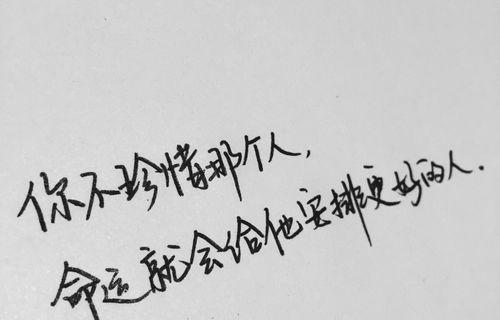 你不珍惜那个人，
命运就会给他安排更好的人.